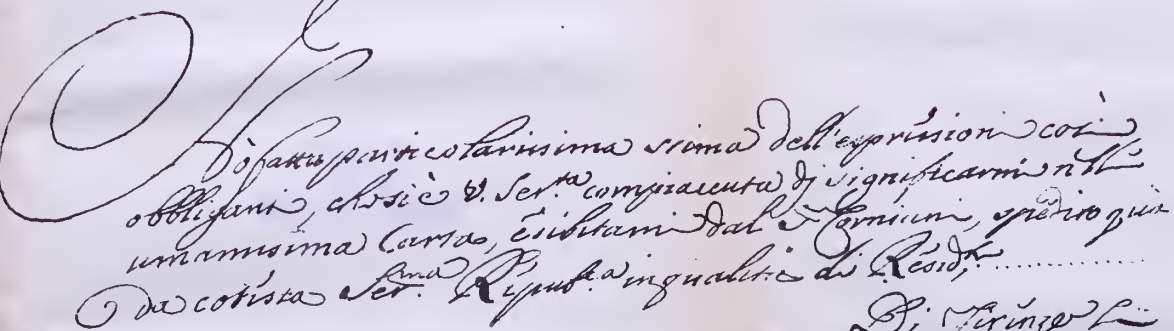 Hò fatto particolarissima stima dell'espressioni così
obbliganti, che si è V. Ser.tà compiaciuta di significarmi nell'
umanissima Carta, esibitami dal Sr Cornioni, spedito quà
da cotesta Ser.ma Repub.ca in qualità di Resid.te ..............
Di Firenze li